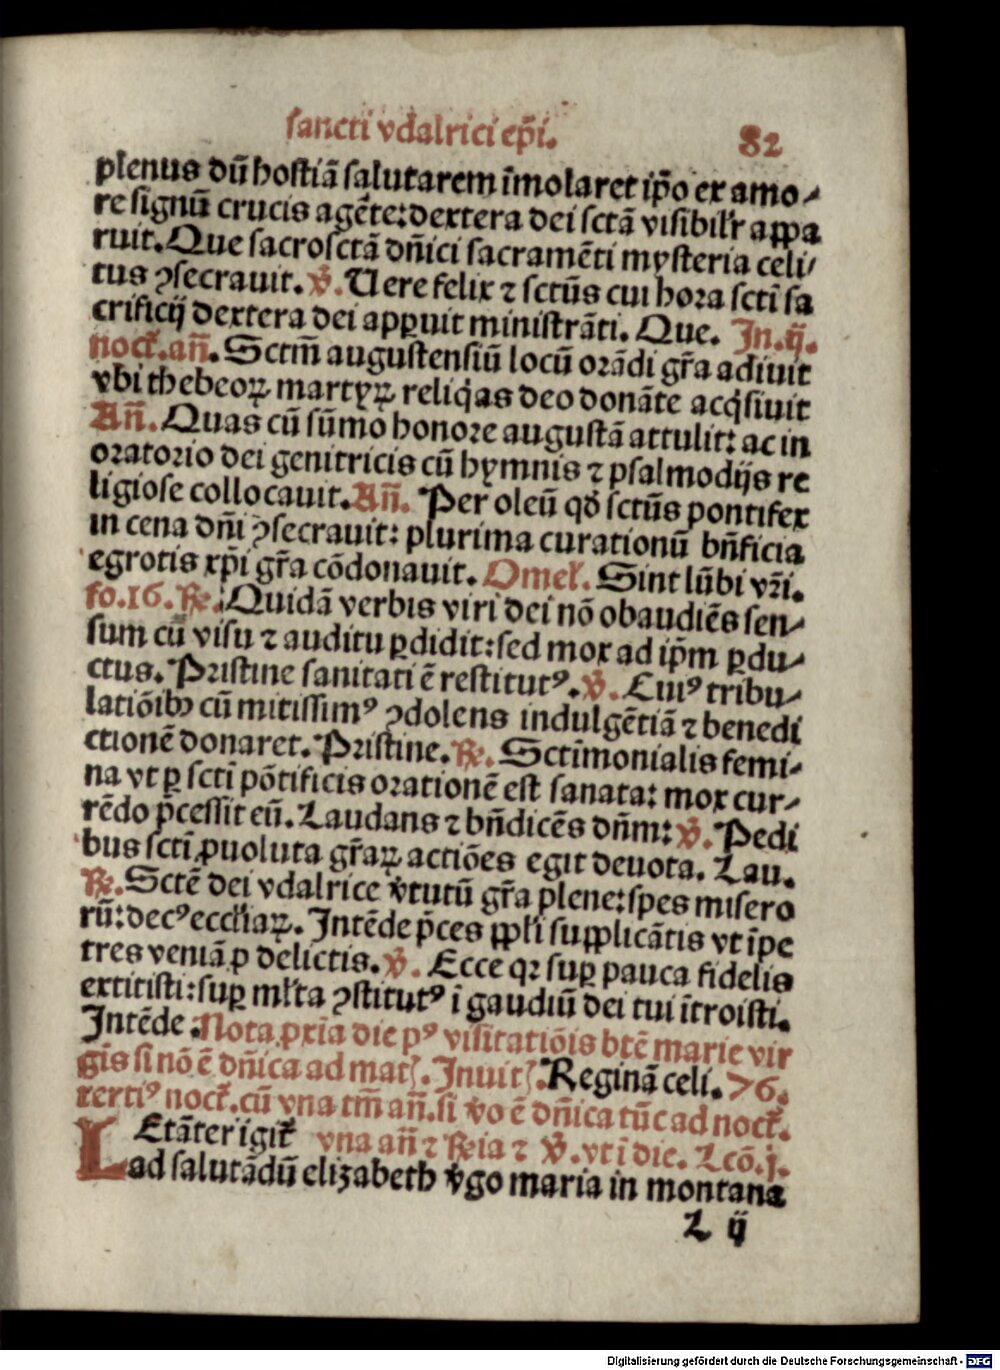 sancti vdalrici ep̄i. 82
plenus dū hostiā salutarem īmolaret ip̄o ex amo-
re signū crucis agēte: dextera dei sctā visibilr̄ appa
ruit. Que sacrosctā dn̄ici sacramēti mysteria celi/
tus ꝯsecrauit. ℣. Uere felix ⁊ sctūs cui hora sctī sa
crificij dextera dei apꝑuit ministrāti. Que. In .ij.
noct̄. an̄. Sctm̄ augustensiū locū orādi gr̄a adiuit
vbi thebeoꝝ martyꝝ reliq̇as deo donāte acq̇siuit
An̄. Quas cū sūmo honore augustā attulit: ac in
oratorio dei genitricis cū hymnis ⁊ psalmodijs re
ligiose collocauit. An̄. Per oleū qd̄ sctūs pontifex
in cena dn̄i ꝯsecrauit: plurima curationū bn̄ficia
egrotis xp̄i gr̄a cōdonauit. Omel̄. Sint lūbi vr̄i.
fo.16. ℟. Quidā verbis viri dei nō obaudiēs sen-
sum cū visu ⁊ auditu ꝑdidit: sed mox ad ip̄m ꝑdu-
ctus. Pristine sanitati ē restitutꝰ. ℣. Cuiꝰ tribu-
latiōibꝫ cū mitissimꝰ ꝯdolens indulgētiā ⁊ benedi
ctionē donaret. Pristine. ℟. Sctīmonialis femi-
na vt ꝑ sctī pōtificis orationē est sanata: mox cur-
rēdo p̄cessit eū. Laudans ⁊ bn̄dicēs dn̄m: ℣. Pedi
bus sctī ꝓuoluta gr̄aꝝ actiōes egit deuota. Lau.
℟. Sctē dei vdalrice v̄tutū gr̄a plene: spes misero
rū: decꝰ eccl̄iaꝝ. Intēde p̄ces ppl̄i supplicātis vt īpe
tres veniā ꝓ delictis. ℣. Ecce qꝛ suꝑ pauca fidelis
extitisti: suꝑ ml̄ta ꝯstitutꝰ ī gaudiū dei tui ītroisti.
Intēde. Nota ꝓxīa die pꝰ visitatiōis btē marie vir
gīs si nō ē dn̄ica ad matꝭ. Inuitꝭ. Reginā celi. 76.
tertiꝰ noct̄. cū vna tm̄ an̄. si v̄o ē dn̄ica tūc ad noct̄.
Letāter igit̄ vna an̄ ⁊ ℟ia ⁊ ℣. vt ī die. Lcō. j.
ad salutādū elizabeth v̄go maria in montana
L ij
Digitalisierung gefördert durch die Deutsche Forschungsgemeinschaft - DFG